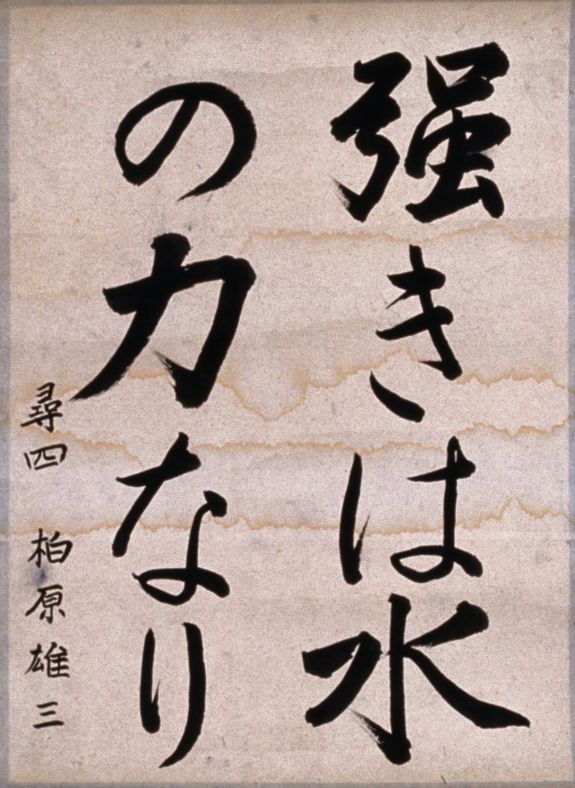 強きは水
の力なり
尋四 柏原雄三